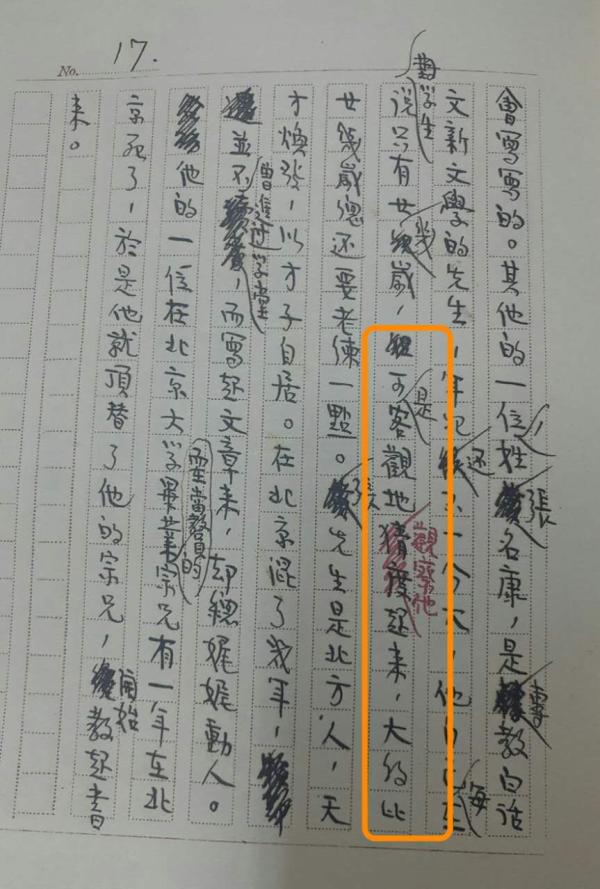 No. 17.
會寫寫的。其他的一位姓張名康，是專教白話
文新文學的先生，年紀還不一今大，他自己在每
對學生
說只有廿幾歲，但是可客觀地觀察他猜度起來，大約比
廿幾歲總還要老練一點。張先生是北方人，天
才煥發，以才子自居。在北京混了幾年，
並不曾進過學堂，而寫起文章來，却總娓娓動人。
他的一位在北京大學畢業要當教員的宗兄有一年在北
京死了，於是他就頂替了他的宗兄，開始教起書
來。